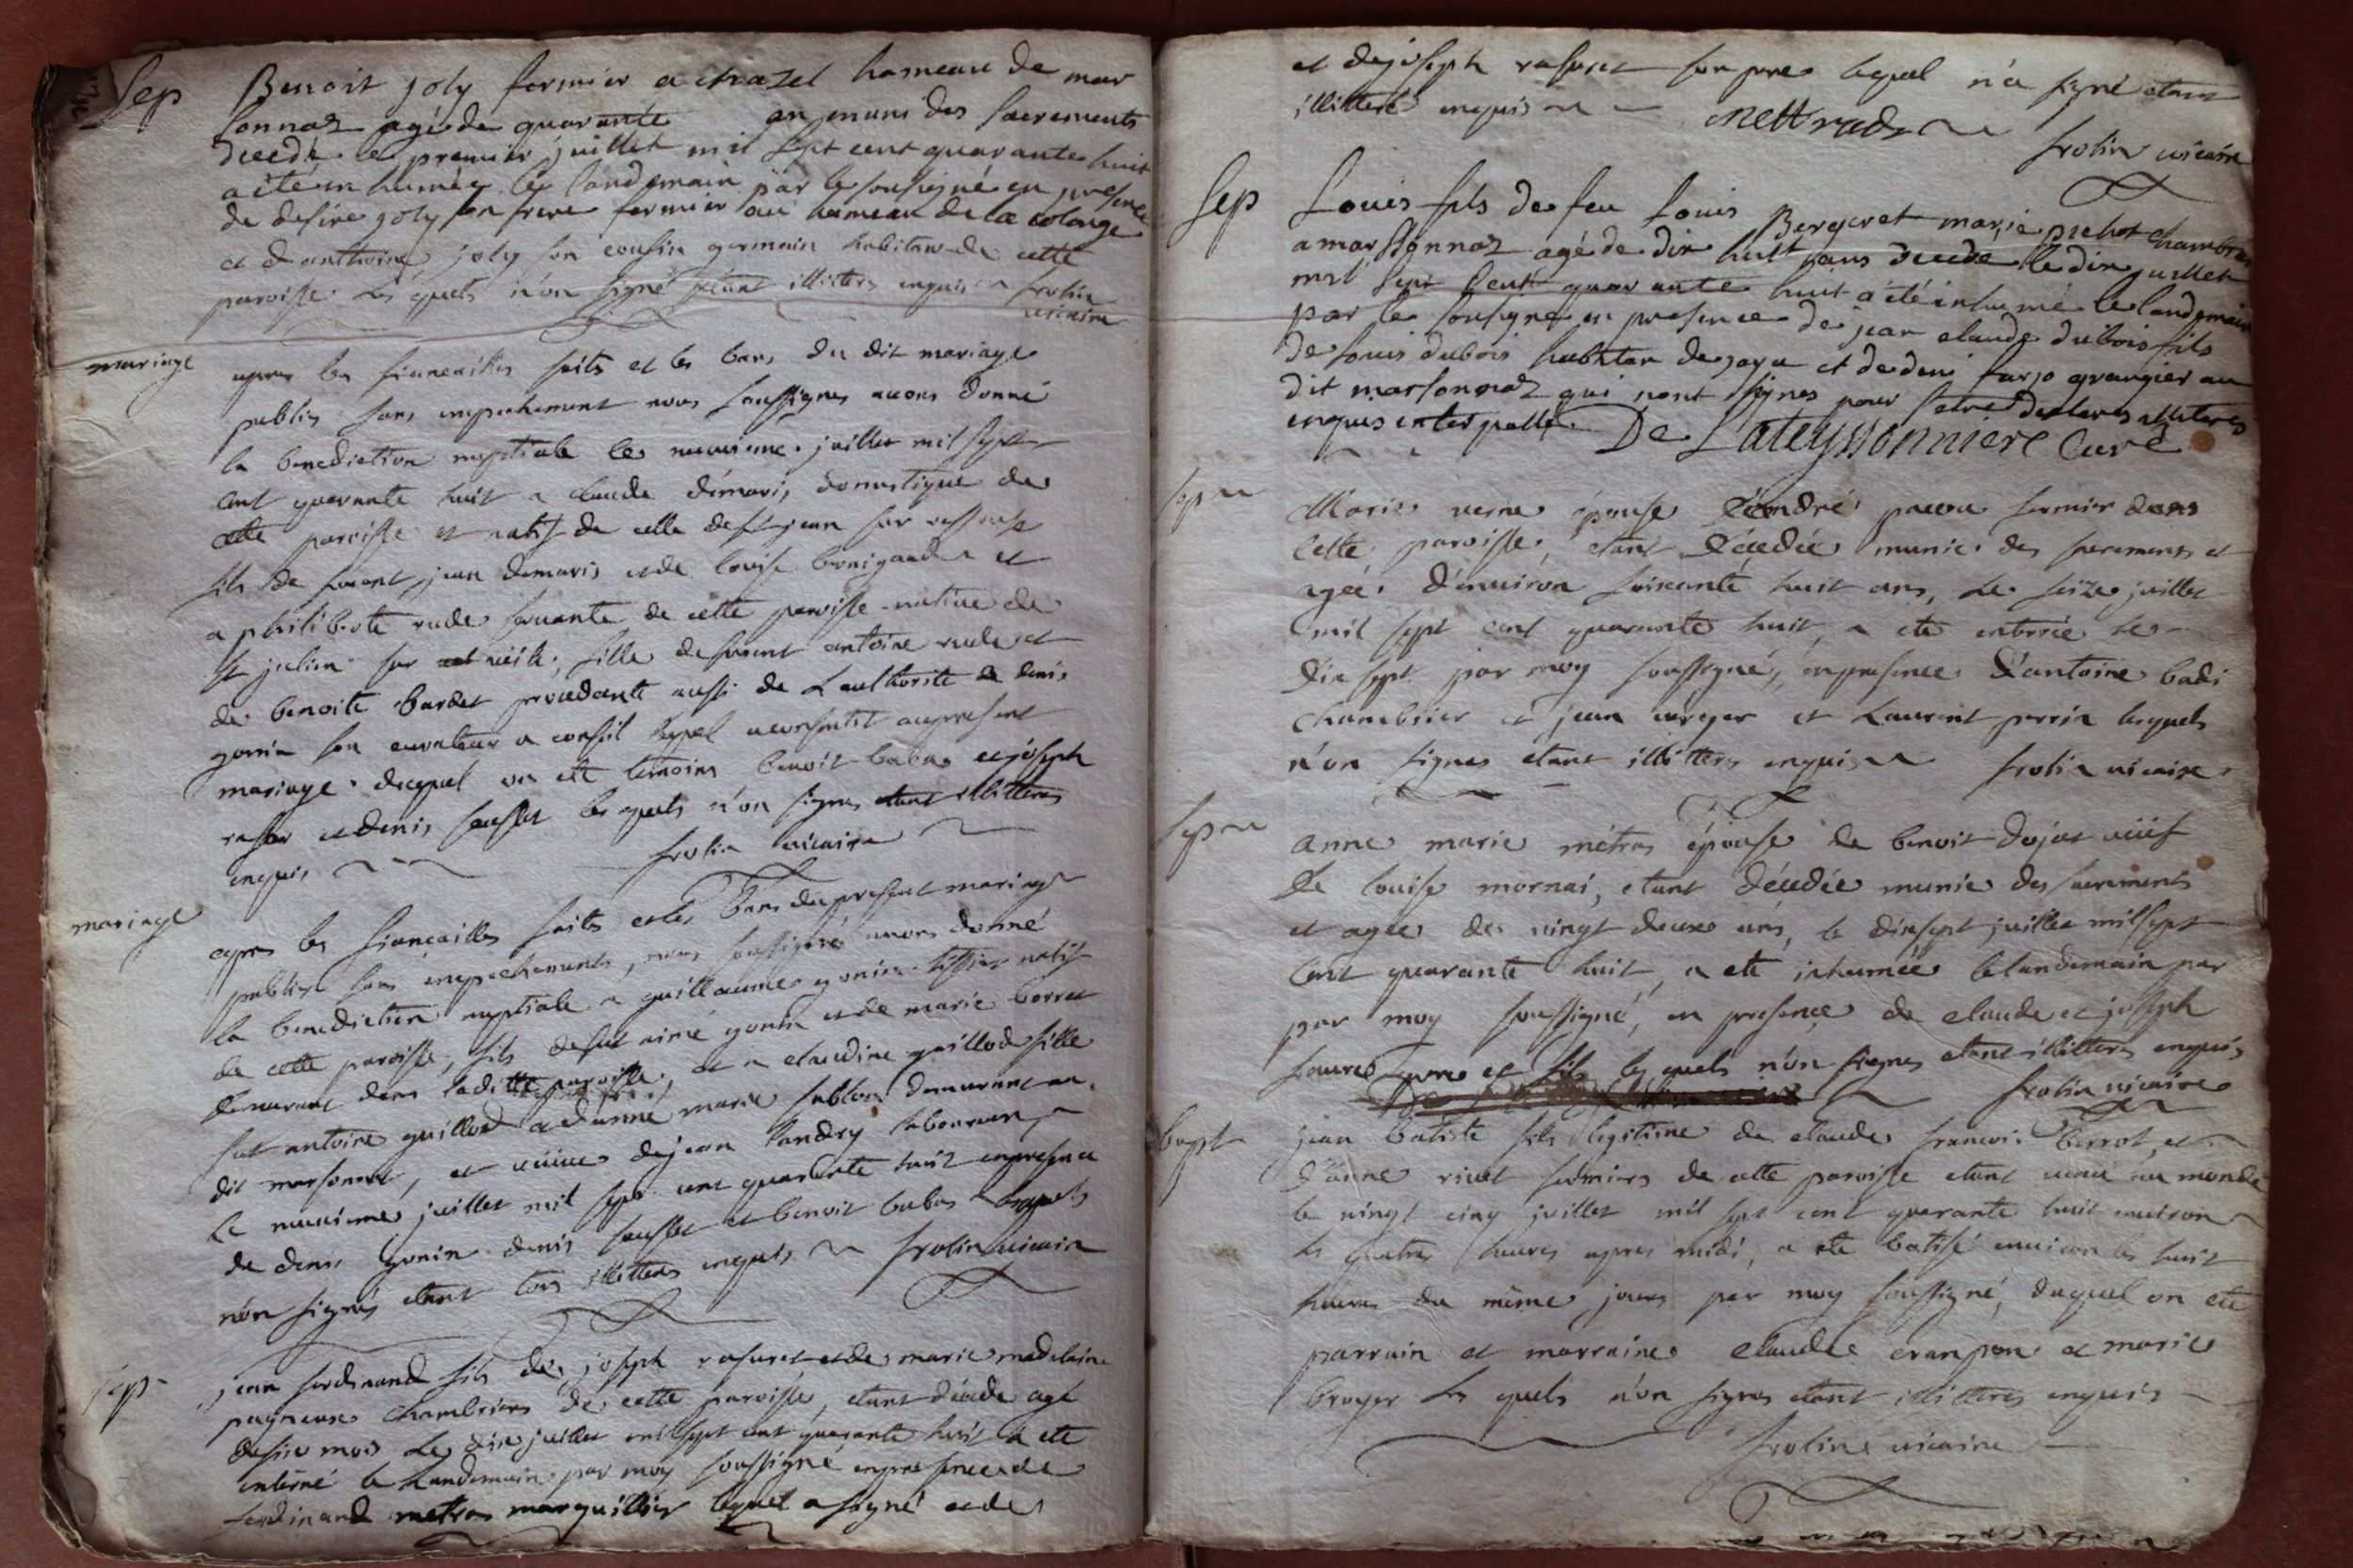 Sep Benoit joly fermier a chazel hameau de mar
sonnaz agé de quarante an muni des sacrements
decedé le premier juillet mil sept cent quarante huit
a été inhumée le landemain par le sousigné en presence
de desire joly son frere fermier au hameau de la
et d'anthoine joly son cousin germain habitan de cette
paroisse les quels n'on signé étant illiters enquis frolin
vicaire
mariage apres les fiancailles faits et les bans du dit mariage
publies sans empechement nous soussignes avons donné
la benediction nuptiale le neuvieme juillet mil sept
cent quarante huit a claude démaris domestique de
cette paroisse et natif de celle de st jean sur
fils de feu jean demaris et de louise et
a philiberte rude servante de cette paroisse native de
st julien sur fille de antoine rude et
de benoite bardet procedante aussi de L'authorité de denis
gonin son curateur a conseil lequel a consentit au present
mariage duquel on eté temoins benoit et joseph
et denis les quels n'on signes etant illitteres
enquis frolin vicaire
mariage apres les fiancailles faits et les bans du present mariage
publies sans empechements, nous soussigné avons donné
la benediction nuptiale a guillaume gonin natif
de cette paroisse, fils de fut aimé gonin et de marie
demeurant dans laditte paroisse, et a claudine guillod fille
fut antoine guillod et d'anne marie sablon demeurant au
dit marsonnat, et veuve de jean landry laboureur
le neuvieme juillet mil sept cent quarante huit en presence
de denis gonin denis et benoit lesquels
n'on signés etant tous illitteres enquis frolin vicaire
sep jean ferdinand fils de joseph rasuret et de marie madelaine
pagneux chambriers de cette paroisse, etant décede agé
de mois le dix juillet mil sept cent quarante huit a eté
enterré le landemain par moy soussigné en presence de
ferdinand metras marguillier lequel a signé et de
et de joseph rasuret son pere lequel n'a signé etant
illitteré enquis Mettrad
frolin vicaire
Sep Louis fils de feu Louis Bergeret chambrier
a marssonnaz agé de dix huit ans decede le dix juillet
mil sept cent quarante huit a été inhumé le landemain
par le sousigné en presence de jean claude dubois fils
de louis dubois habitan de et de deni grangier au
dit marsonnaz qui nont signes pour s'etre declares illiteres
enquis interpellé De Lateyssonniere Curé
sep Marie épouse d'andré fermier dans
cette paroisse, etant décedée munie des sacrements et
agée d'environ soixante huit ans, le seize juillet
mil sept cent quarante huit, a eté enterrée le
dix sept par moy soussigné, en presence d'antoine badi
chambrier et jean et Laurent perrin lesquels
n'on signes etant illitteres enquis frolin vicaire
sep anne marie métras épouse de benoit dujat
de louise mornai, etant décedée munie des sacrements
et agée de vingt deux ans, le dixsept juillet mil sept
cent quarante huit, a eté inhumée le landemain par
par moy soussigné, en presence de claude et joseph
pere et fils les quels n'on signes etant illitteres enquis
frolin vicaire
bapt jean batiste fils legitime de claude francois et
d'anne rivet fermiers de cette paroisse etant venu au monde
le vingt cinq juillet mil sept cent quarante huit environ
les quatre heures apres midi, a eté batisé environ les huit
heures du même jours par moy soussigné, duquel on eté
parrain et marraine claude et marie
broyer les quels n'on signes etant illitteres enquis
frolin vicaire